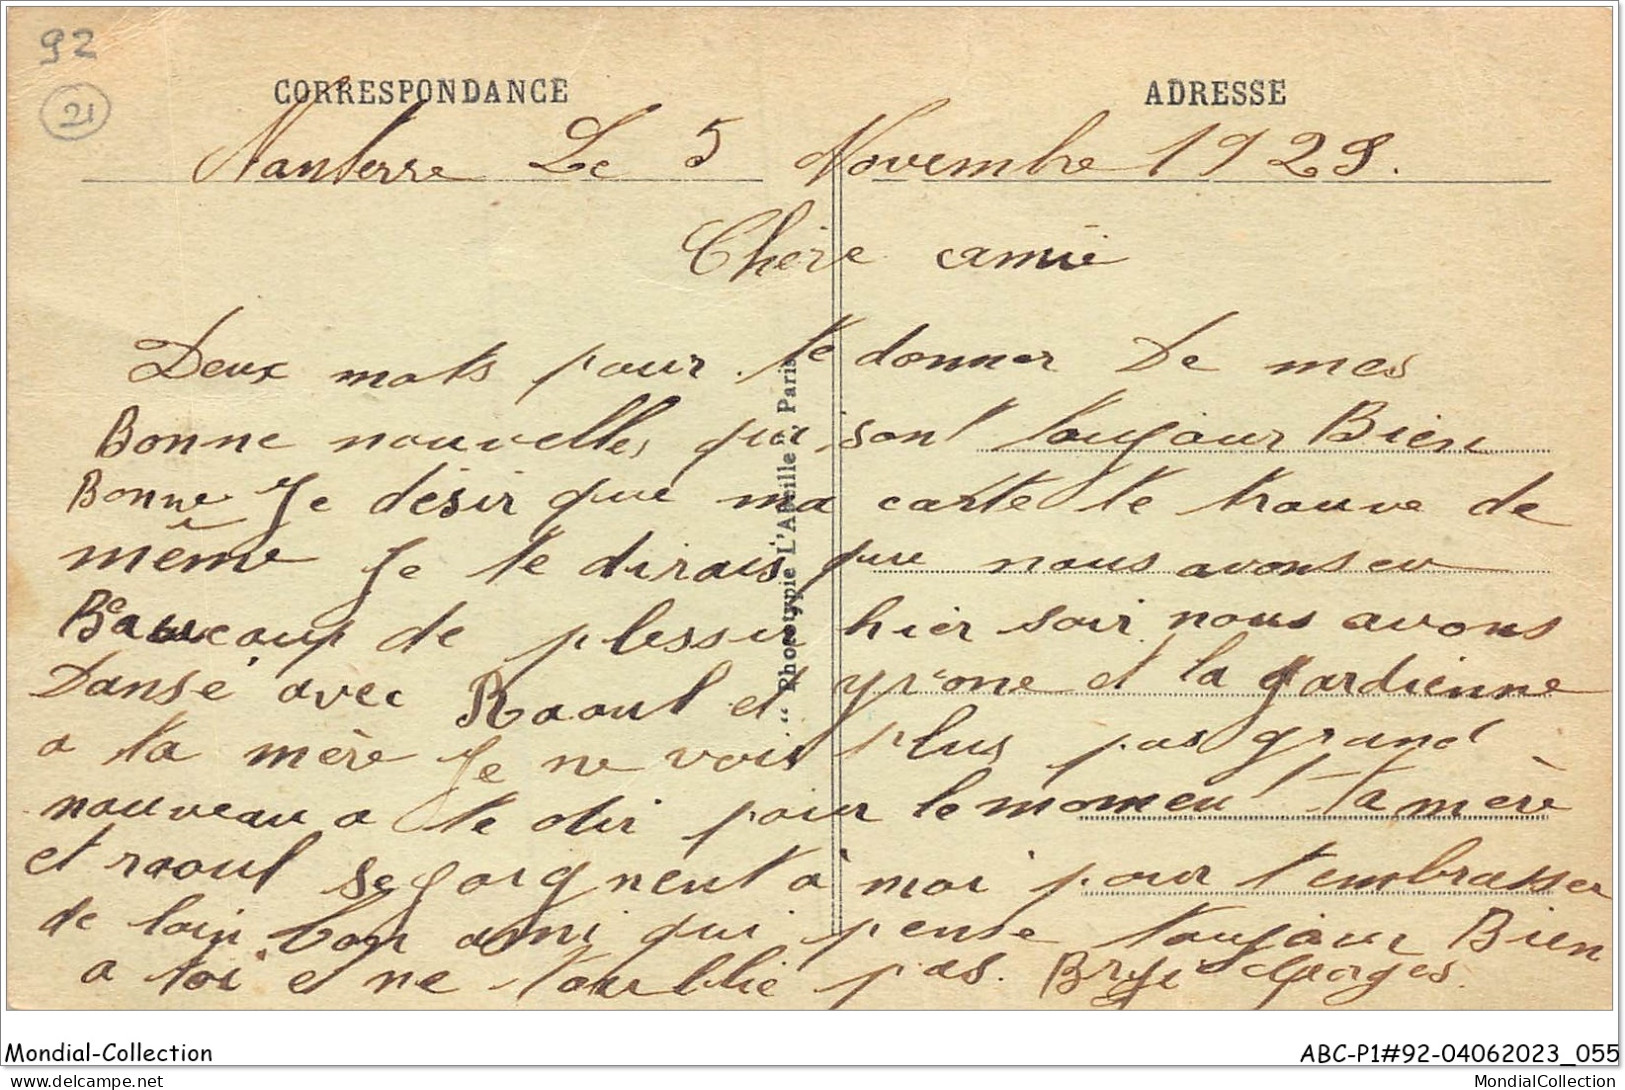 92
21
CORRESPONDANCE ADRESSE
Nanterre Le 5 Novembre 1929.
Chère amie
Deux mots pour te donner De mes
Bonne nouvelles qui sont toujour Bien
Bonne Je désir que ma carte te trouve de
même Je te dirais que nous avons eu
Beaucoup de plessir hier soir nous avons
Dansé avec Raoul et yvone et la gardienne
a ta mère Je ne vois plus pas grand
nouveau a te dir pour le moment ta mère
et raoul se joignent à moi pour t'embrasser
de loin ton ami qui pense toujour Bien
a toi e ne t'oublie pas. Georges.
"Phototypie L'Abeille", Paris
Mondial-Collection ABC-P1#92-04062023_055
delcampe.net MondialCollection